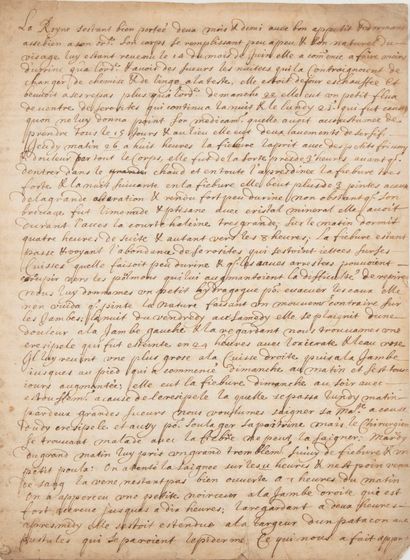 La Royne sestant bien portée deux mois & demi avec bon appetit & dormant
asses bien a son ord.re son corps se remplissant peu a peu & bon naturel du
visage luy estant revenu le 14 du mois de Juin elle a commencé a faire moins
durine qua lord.re & avoit des sueurs les nuictes qui la Contraignoient de
changer de chemise & de linge a la teste, elle estoit de jour eschauffée &
beuvoit a ses repas plus qua lord.re demanche 22 elle eut un petit flux
de ventre de serosites qui continua la nuict & le lundy 23. qui fut cause
quon ne luy donna point son medicam. quelle avoit accoustumée de
prendre tous les 15 jours & au lieu elle eut deux lavements
Jeudy matin 26 a huict heures la fiebure la prit avec des petits frissons
& douleur par tout le Corps, elle fut de la sorte pres de 3 heures avant que
dentrer dans le grande chaud et en tout l'apresdinée la fiebure
forte & la nuict suivante en sa fiebure elle beut plus de 3 pintes avec
de la grande alteration & rendu fort peu durine non obstant que son
breuvage fut limonade & ptisane avec cristal mineral elle avoit
durant l'acces la courte haleine tres grande, sur le matin dormit
quatre heures de suite & autant vers les 3 heures, la fiebure estant
passée & voyant l'abondance de serosites qui sestoient jettees sur les
Cuisses quelle faisoit peu durine & que les eaues
vers les poumons qui lui augmentoient la difficulté de respirer
nous luy donnames un petit hydragogue po. evacuer les eaux elle
non vuida qu. pinte la nature faisant un mouvement contraire sur
les Jambes, la nuit du vendredy au Samedy elle se plaignit dune
douleur a la Jambe gauche & la regardant nous trouvames une
eresipele qui fut esteinte en 24 heures avec loxicrate & leau rose
Il luy revint une plus grosse a la Cuisse droite puis a la Jambe
jusques au pied qui a commencé dimanche au matin & sest tous
jours augmentée, elle eut la fiebure dimanche au soir avec
a cause de leresipele la quelle se passa lundy matin
par deux grandes sueurs nous voulumes saigner sa Ma.té a cause
eresipele et aussy po. soulager la poitrine mais le Chirurgien
se trouvant malade avec la fiebre ne peut la saigner. Mardy
du grand matin luy pris un grand tremblem. suivy de fiebure & un
petit pouls. On a tenté la saignee sur les 12 heures & nest point venu
de sang la vene nestant pas bien ouverte a 7 heures du matin
On a apperceu une petite noirceur a la Jambe droite qui est
fort accreue jusques a dix heures, la regardant a deux heures
apresmidy elle sestoit estendue a la largeur d'un patacon aux
pustules qui separoient lepiderme. Ce qui nous a fait appr